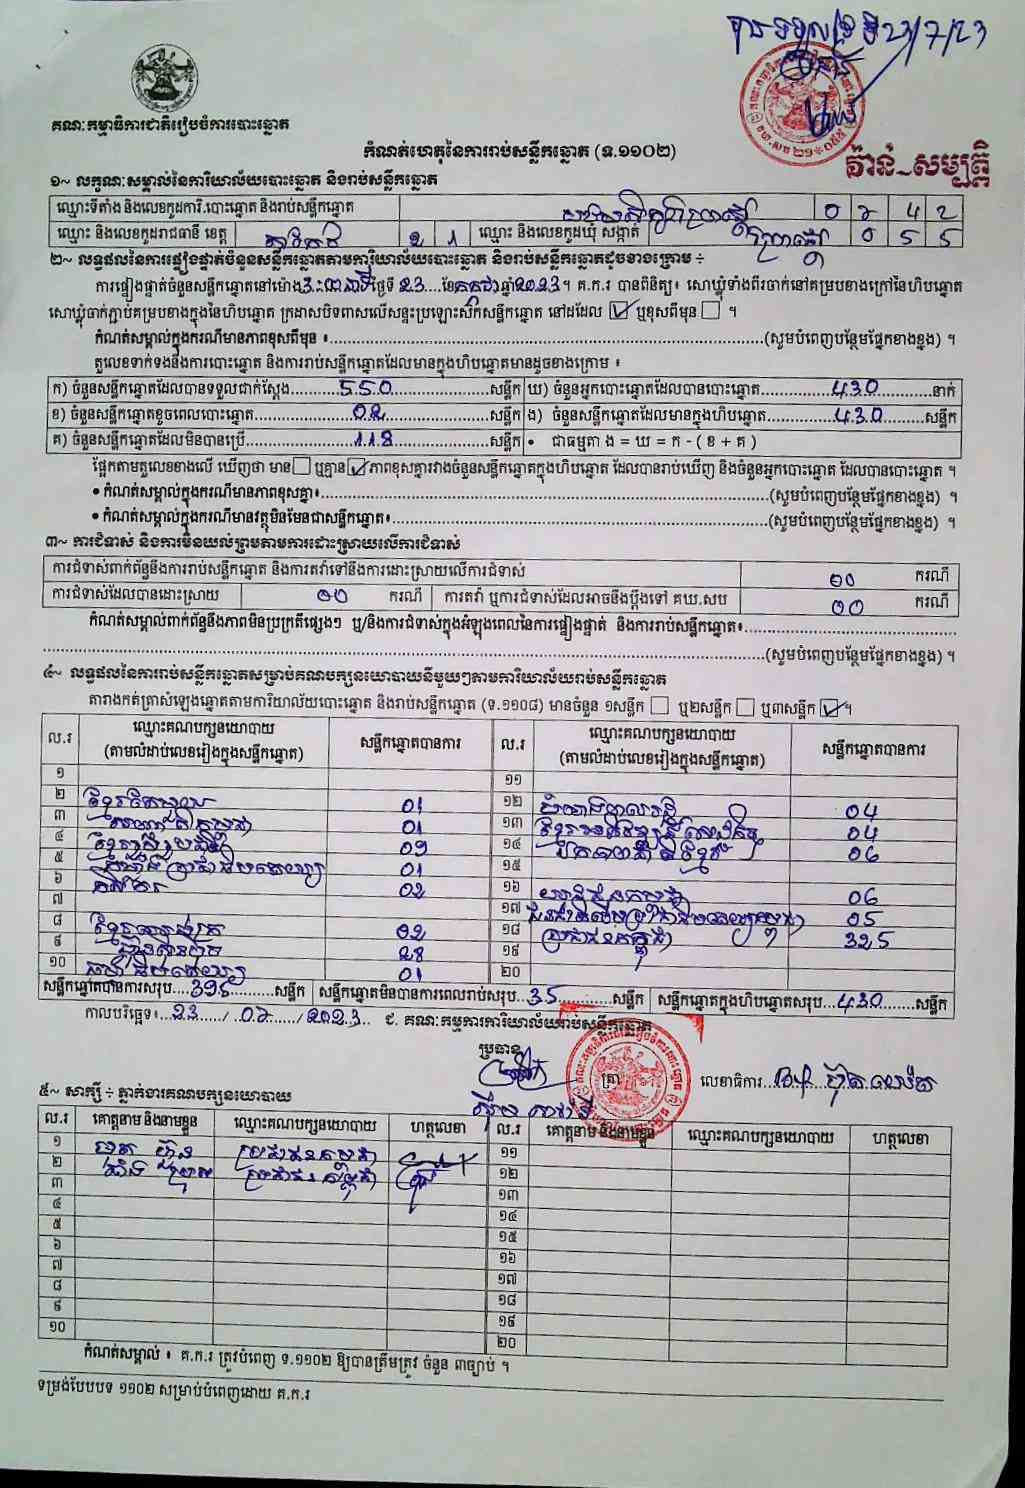 បានទទួលថ្ងៃទី 23/7/23
គណៈកម្មាធិការជាតិរៀបចំការបោះឆ្នោត
កំណត់ហេតុនៃការរាប់សន្លឹកឆ្នោត (ទ.១១០២)
វ៉ាន់ សម្បត្តិ
១~ លក្ខណៈសម្គាល់នៃការិយាល័យបោះឆ្នោត និងរាប់សន្លឹកឆ្នោត
ឈ្មោះទីតាំង និងលេខកូដការិ.បោះឆ្នោត និងរាប់សន្លឹកឆ្នោត 0 6 4 2
ឈ្មោះ និងលេខកូដរាជធានី ខេត្ត តាកែវ 2 1 ឈ្មោះ និងលេខកូដឃុំ សង្កាត់ 0 5 5
២~ លទ្ធផលនៃការផ្ទៀងផ្ទាត់ចំនួនសន្លឹកឆ្នោតតាមការិយាល័យបោះឆ្នោត និងរាប់សន្លឹកឆ្នោតដូចខាងក្រោម ÷
ការផ្ទៀងផ្ទាត់ចំនួនសន្លឹកឆ្នោតនៅម៉ោង ថ្ងៃទី 23 ខែ កក្កដា ឆ្នាំ 2023 ។ គ.ក.រ បានពិនិត្យ៖ សោឃ្លុំទាំងពីរចាក់នៅគម្របខាងក្រៅនៃហិបឆ្នោត
សោឃ្លុំចាក់ភ្ជាប់គម្របខាងក្នុងនៃហិបឆ្នោត ក្រដាសបិទពាសលើសន្ទះប្រឡោះស៊កសន្លឹកឆ្នោត នៅដដែល ☑ ឬខុសពីមុន ☐ ។
កំណត់សម្គាល់ក្នុងករណីមានភាពខុសពីមុន ៖ (សូមបំពេញបន្ថែមផ្នែកខាងខ្នង) ។
តួលេខទាក់ទងនឹងការបោះឆ្នោត និងការរាប់សន្លឹកឆ្នោតដែលមានក្នុងហិបឆ្នោតមានដូចខាងក្រោម ៖
ក) ចំនួនសន្លឹកឆ្នោតដែលបានទទួលជាក់ស្ដែង 550 សន្លឹក ឃ) ចំនួនអ្នកបោះឆ្នោតដែលបានបោះឆ្នោត 430 នាក់
ខ) ចំនួនសន្លឹកឆ្នោតខូចពេលបោះឆ្នោត 02 សន្លឹក ង) ចំនួនសន្លឹកឆ្នោតដែលមានក្នុងហិបឆ្នោត 430 សន្លឹក
គ) ចំនួនសន្លឹកឆ្នោតដែលមិនបានប្រើ 118 សន្លឹក • ជាធម្មតា ង = ឃ = ក - ( ខ + គ )
ផ្អែកតាមតួលេខខាងលើ ឃើញថា មាន ☐ ឬគ្មាន ☑ ភាពខុសគ្នារវាងចំនួនសន្លឹកឆ្នោតក្នុងហិបឆ្នោត ដែលបានរាប់ឃើញ និងចំនួនអ្នកបោះឆ្នោត ដែលបានបោះឆ្នោត ។
• កំណត់សម្គាល់ក្នុងករណីមានភាពខុសគ្នា៖ (សូមបំពេញបន្ថែមផ្នែកខាងខ្នង) ។
• កំណត់សម្គាល់ក្នុងករណីមានវត្ថុមិនមែនជាសន្លឹកឆ្នោត៖ (សូមបំពេញបន្ថែមផ្នែកខាងខ្នង) ។
៣~ ការជំទាស់ និងការមិនយល់ព្រមតាមការដោះស្រាយលើការជំទាស់
ការជំទាស់ពាក់ព័ន្ធនឹងការរាប់សន្លឹកឆ្នោត និងការតវ៉ាទៅនឹងការដោះស្រាយលើការជំទាស់ 00 ករណី
ការជំទាស់ដែលបានដោះស្រាយ 00 ករណី ការតវ៉ា ឬការជំទាស់ដែលអាចនឹងប្ដឹងទៅ គឃ.សប 00 ករណី
កំណត់សម្គាល់ពាក់ព័ន្ធនឹងភាពមិនប្រក្រតីផ្សេងៗ ឬ/និងការជំទាស់ក្នុងអំឡុងពេលនៃការផ្ទៀងផ្ទាត់ និងការរាប់សន្លឹកឆ្នោត៖
(សូមបំពេញបន្ថែមផ្នែកខាងខ្នង) ។
៤~ លទ្ធផលនៃការរាប់សន្លឹកឆ្នោតសម្រាប់គណបក្សនយោបាយនីមួយៗតាមការិយាល័យរាប់សន្លឹកឆ្នោត
តារាងកត់ត្រាសំឡេងឆ្នោតតាមការិយាល័យបោះឆ្នោត និងរាប់សន្លឹកឆ្នោត (ទ.១១០៨) មានចំនួន ១សន្លឹក ☐ ឬ២សន្លឹក ☐ ឬ៣សន្លឹក ☑ ។
ល.រ ឈ្មោះគណបក្សនយោបាយ (តាមលំដាប់លេខរៀងក្នុងសន្លឹកឆ្នោត) សន្លឹកឆ្នោតបានការ ល.រ ឈ្មោះគណបក្សនយោបាយ (តាមលំដាប់លេខរៀងក្នុងសន្លឹកឆ្នោត) សន្លឹកឆ្នោតបានការ
១ ១១
២ ខ្មែរតែមួយ 01 ១២ 04
៣ 01 ១៣ 04
៤ 09 ១៤ 06
៥ 01 ១៥
៦ 02 ១៦ 06
៧ ១៧ 05
៨ 02 ១៨ ប្រជាជនកម្ពុជា 325
៩ ហ៊្វុនស៊ិនប៉ិច 28 ១៩
១០ 01 ២០
សន្លឹកឆ្នោតបានការសរុប 395 សន្លឹក សន្លឹកឆ្នោតមិនបានការពេលរាប់សរុប 35 សន្លឹក សន្លឹកឆ្នោតក្នុងហិបឆ្នោតសរុប 430 សន្លឹក
កាលបរិច្ឆេទ៖ 23 / 07 / 2023 ជ. គណៈកម្មការការិយាល័យរាប់សន្លឹកឆ្នោត
ប្រធាន
ត្រា លេខាធិការ
៥~ សាក្សី ÷ ភ្នាក់ងារគណបក្សនយោបាយ
ល.រ គោត្តនាម និងនាមខ្លួន ឈ្មោះគណបក្សនយោបាយ ហត្ថលេខា ល.រ គោត្តនាម និងនាមខ្លួន ឈ្មោះគណបក្សនយោបាយ ហត្ថលេខា
១ ប្រជាជនកម្ពុជា ១១
២ ប្រជាជនកម្ពុជា ១២
៣ ១៣
៤ ១៤
៥ ១៥
៦ ១៦
៧ ១៧
៨ ១៨
៩ ១៩
១០ ២០
កំណត់សម្គាល់ ៖ គ.ក.រ ត្រូវបំពេញ ទ.១១០២ ឱ្យបានត្រឹមត្រូវ ចំនួន ៣ច្បាប់ ។
ទម្រង់បែបបទ ១១០២ សម្រាប់បំពេញដោយ គ.ក.រ